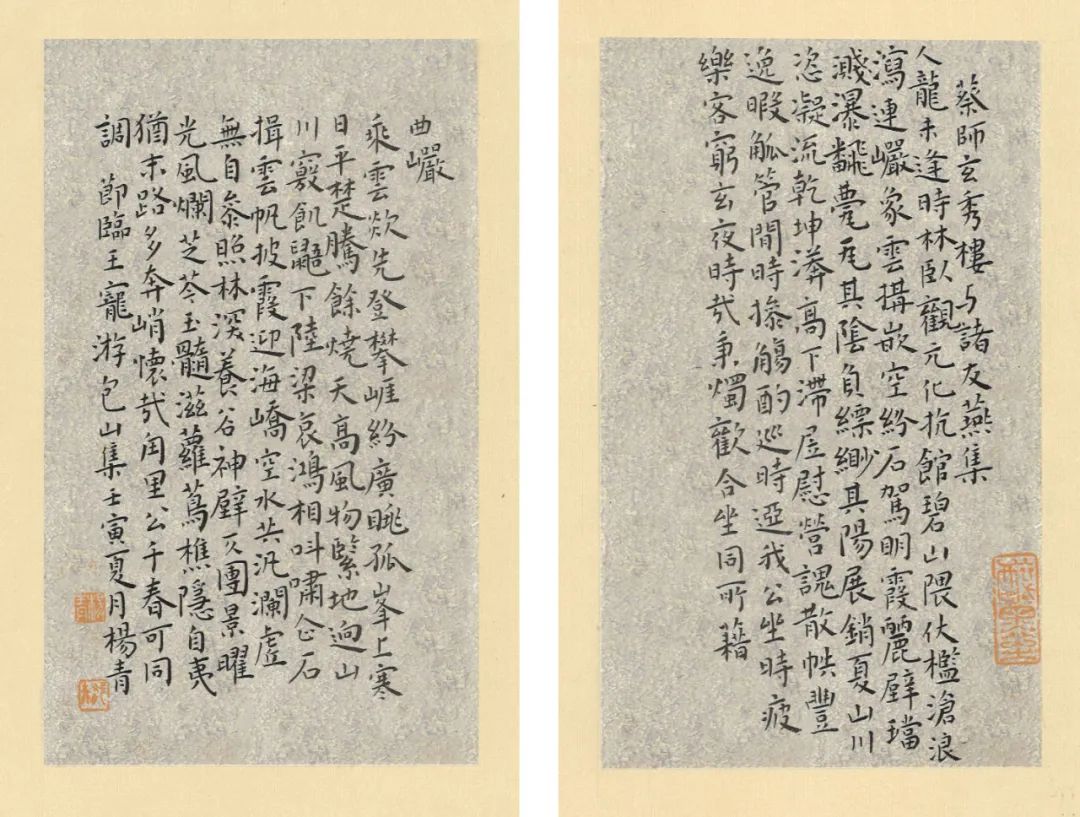 蔡師玄秀樓与諸友燕集
人龍未逢時林臥觀元化抗館碧山隈伏檻滄浪
瀉連巘象雲搆嵌空紛石駕明霞麗壁璫
濺瀑翻甍瓦其陰負縹緲其陽展銷夏山川
恣凝流乾坤滿高下滯居慰營謀散帙豐
逸暇觚管閒時操觴酌巡時迓我公坐時疲
樂客窮玄夜時哉秉燭歡合坐同所籍
曲巖
乘雲欻先登攀崕紛廣眺孤峯上寒
日平楚騰餘燒天高風物緊地迥山
川竅飢鼯下陸梁哀鴻相叫嘯仚石
揖雲帆披霞迎海嶠空水共汎瀾虛
無自叅照林深養谷神壁仄團景曜
光風爛芝苓玉髓滋蘿蔦樵隱自夷
猶末路多奔峭懷哉甪里公千春可同
調 節臨王寵游包山集壬寅夏月楊青